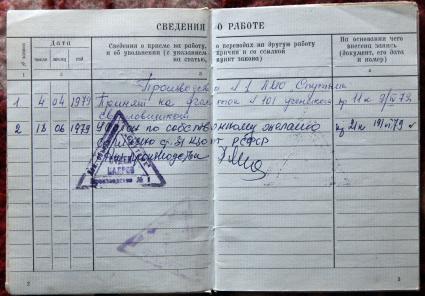 СВЕДЕНИЯ О РАБОТЕ
№ записи
Дата
число месяц год
Сведения о приеме на работу, о переводах на другую работу
и об увольнении (с указанием причин и со ссылкой
на статью, пункт закона)
На основании чего
внесена запись
(документ, его дата
и номер)
1 2 3 4
Производство №1 ПМО Спутник
1 4 04 1979 Принят на участок №101 учеником пр 11к 3/IV 79.
2 12 06 1979 по собственному желанию 21к 19/VI 79
ст. 31 КЗоТ РСФСР
ОТДЕЛ
КАДРОВ
Производство № 1
2 3